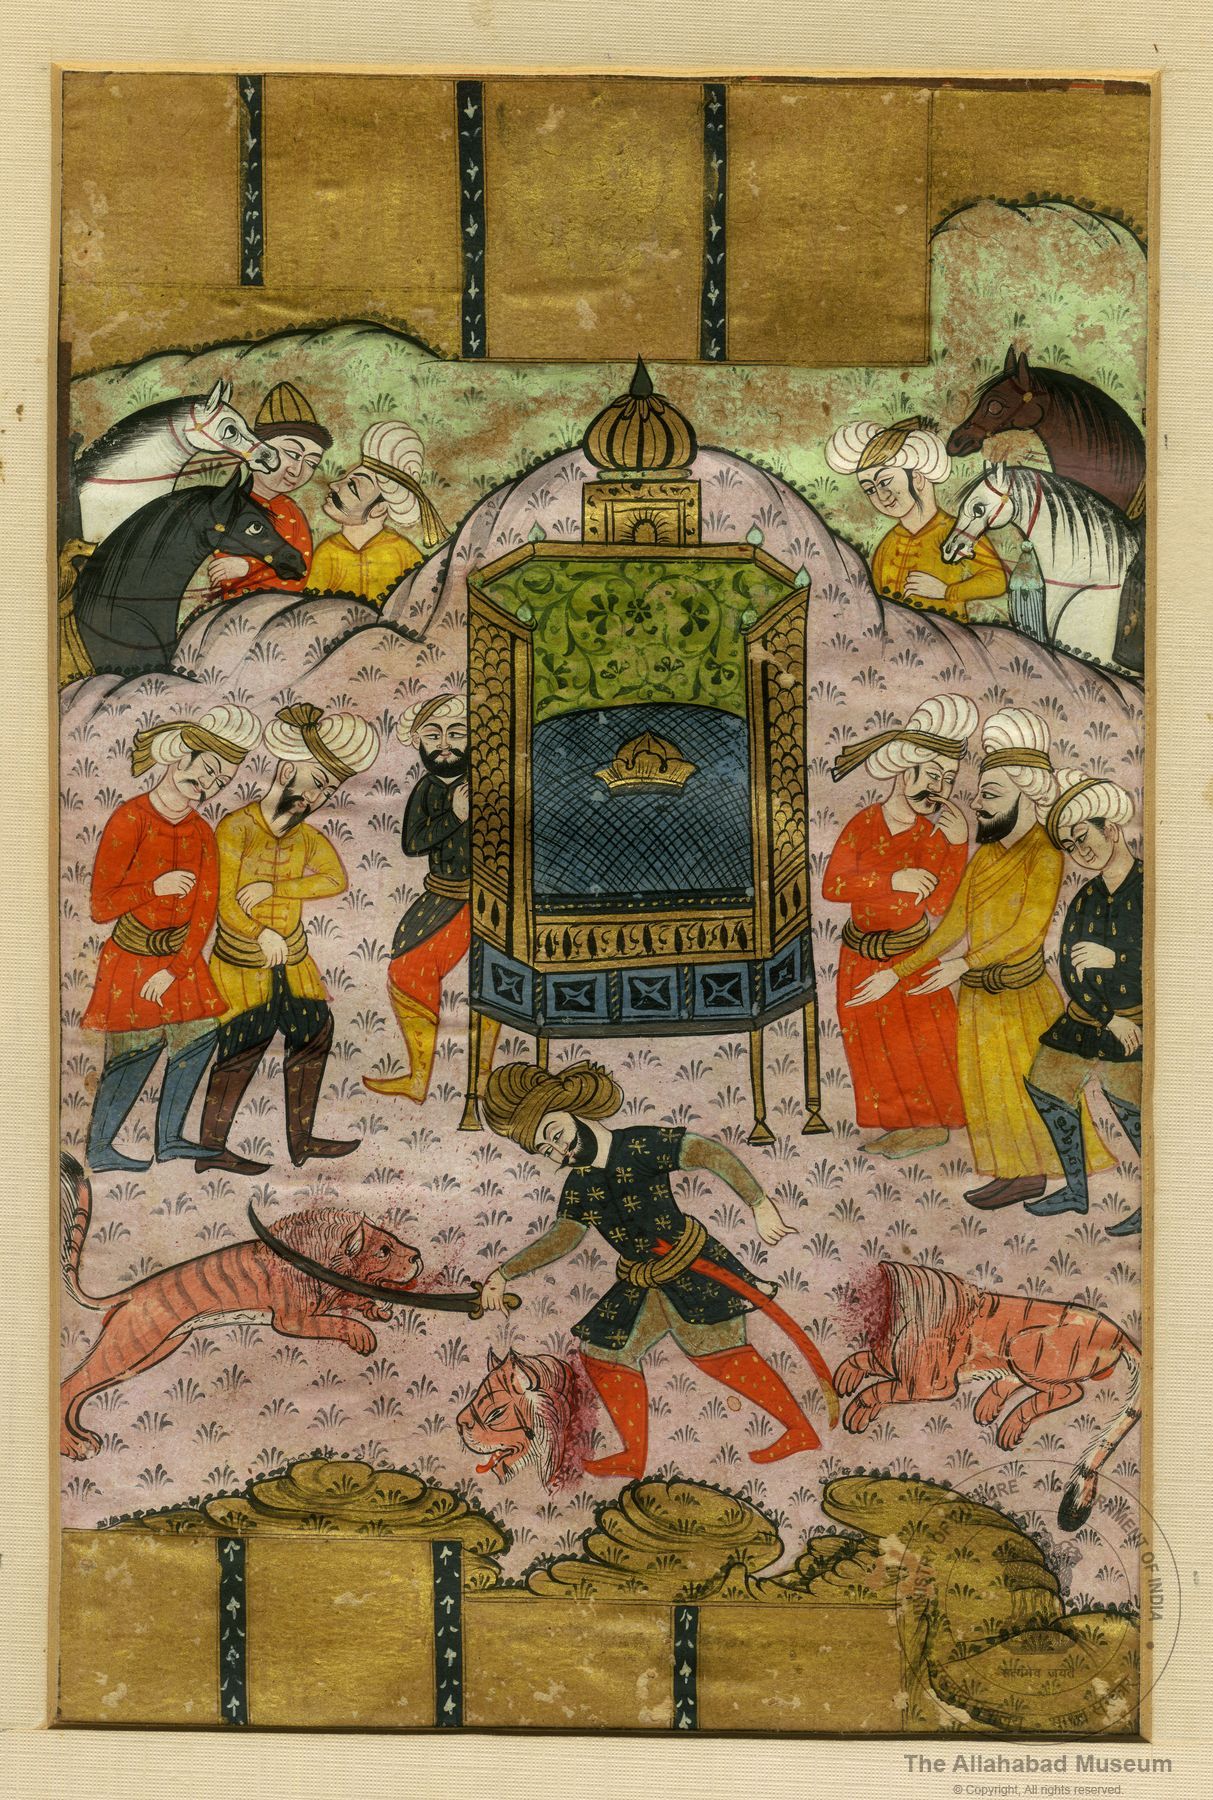 MINISTRY OF CULTURE GOVERNMENT OF INDIA
सत्यमेव जयते
The Allahabad Museum
© Copyright, All rights reserved.